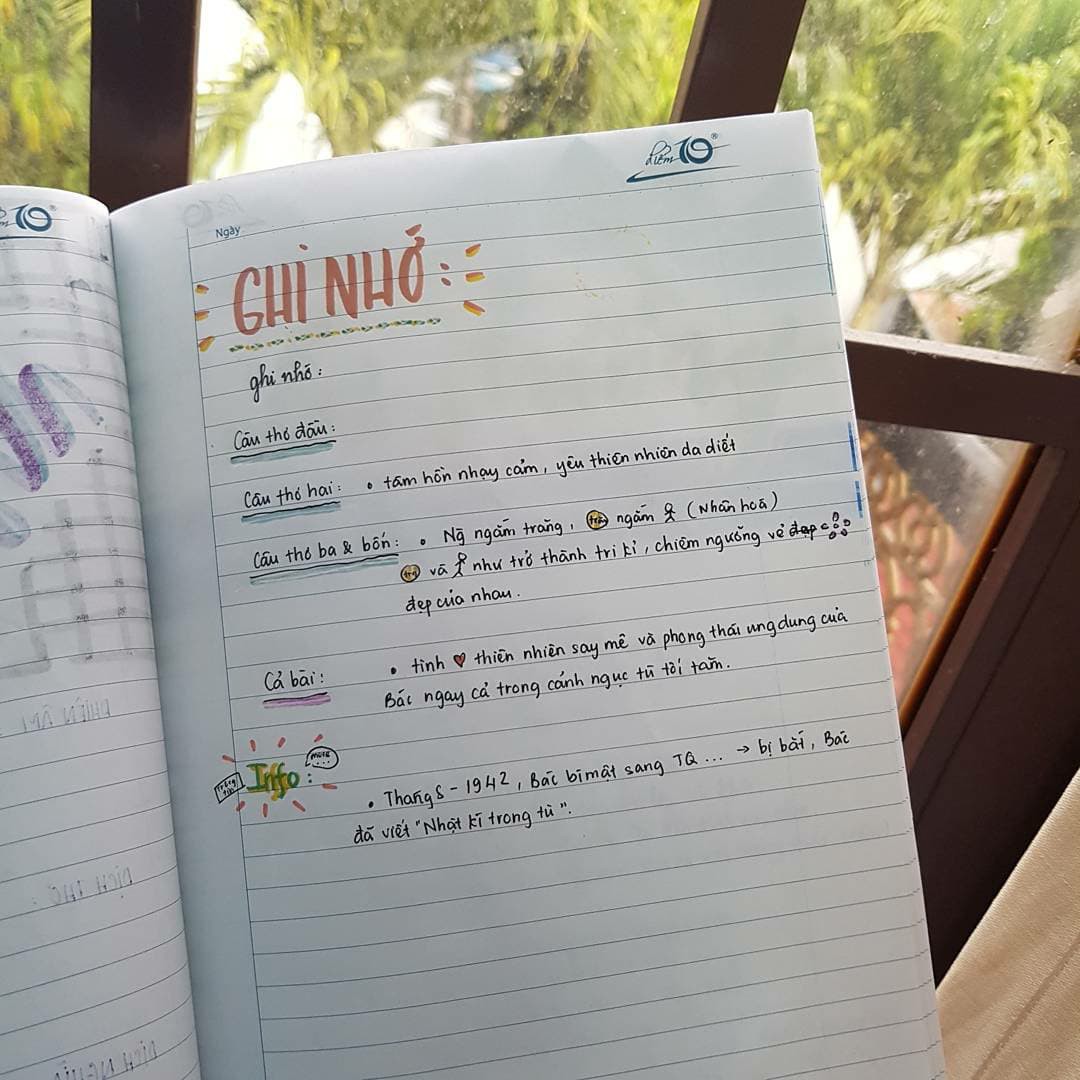 điểm 10
Ngày
GHI NHỚ:
ghi nhớ:
Câu thơ đầu:
Câu thơ hai: • tâm hồn nhạy cảm, yêu thiên nhiên da diết
Câu thơ ba & bốn: • Ng ngắm trăng, trăng ngắm (Nhân hoá)
và như trở thành tri kỉ, chiêm ngưỡng vẻ đẹp
đẹp của nhau.
Cả bài: • tình ♥ thiên nhiên say mê và phong thái ung dung của
Bác ngay cả trong cảnh ngục tù tối tăm.
more...
Thông tin
Info:
• Tháng 8 - 1942, Bác bí mật sang TQ ... → bị bắt, Bác
đã viết "Nhật kí trong tù".